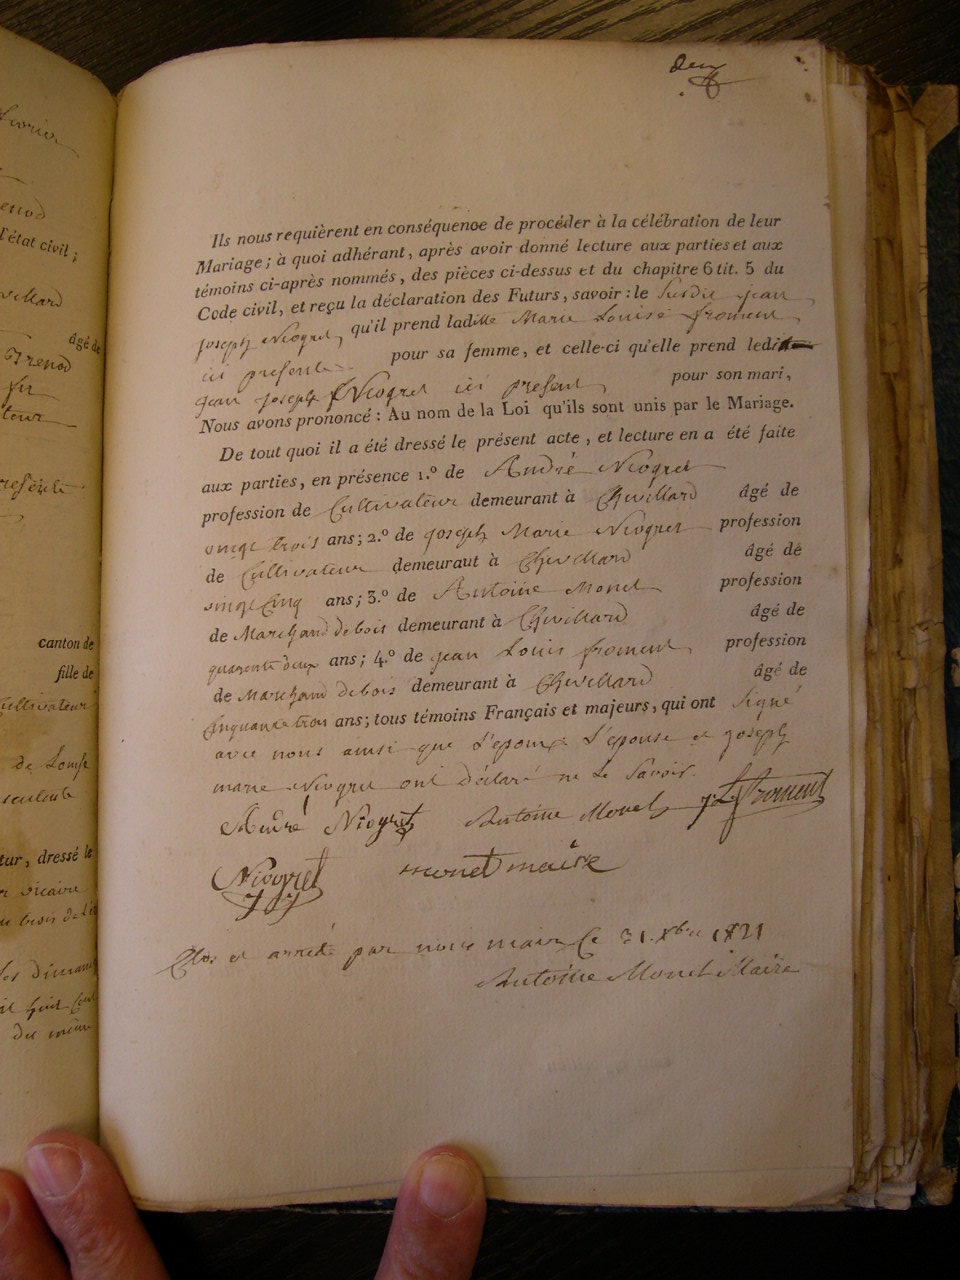 deux
Ils nous requièrent en conséquence de procéder à la célébration de leur
Mariage; à quoi adhérant, après avoir donné lecture aux parties et aux
témoins ci-après nommés, des pièces ci-dessus et du chapitre 6 tit. 5 du
Code civil, et reçu la déclaration des Futurs, savoir: le susdit jean
joseph Niogret, qu'il prend ladite Marie Louise froment,
ici présente pour sa femme, et celle-ci qu'elle prend ledit
jean joseph Niogret ici présent, pour son mari,
Nous avons prononcé: Au nom de la Loi qu'ils sont unis par le Mariage.
De tout quoi il a été dressé le présent acte, et lecture en a été faite
aux parties, en présence 1.º de André Niogret
profession de Cultivateur demeurant à Chevillard âgé de
vingt trois ans; 2.º de joseph Marie Niogret profession
de Cultivateur demeuraut à Chevillard âgé de
vingt Cinq ans; 3.º de Antoine Monet profession
de Marchand de bois demeurant à Chevillard âgé de
quarente deux ans; 4.º de jean Louis froment, profession
de Marchand de bois demeurant à Chevillard âgé de
Cinquante trois ans; tous témoins Français et majeurs, qui ont signé
avec nous ainsi que L'epoux L'epouse et joseph
marie Niogret ont déclaré ne Le Savoir.
André Niogret Antoine Monet J L froment
Niogret monet maire
Clos et arreté par nous maire Ce 31. Xbre 1821
Antoine Monet Maire
fevrier
l'état civil;
Chevillard
âgé de
trenod
canton de
fille de
Cultivateur
de Louise
tur, dressé le
vicaire
du bois de
les dimanch
du même